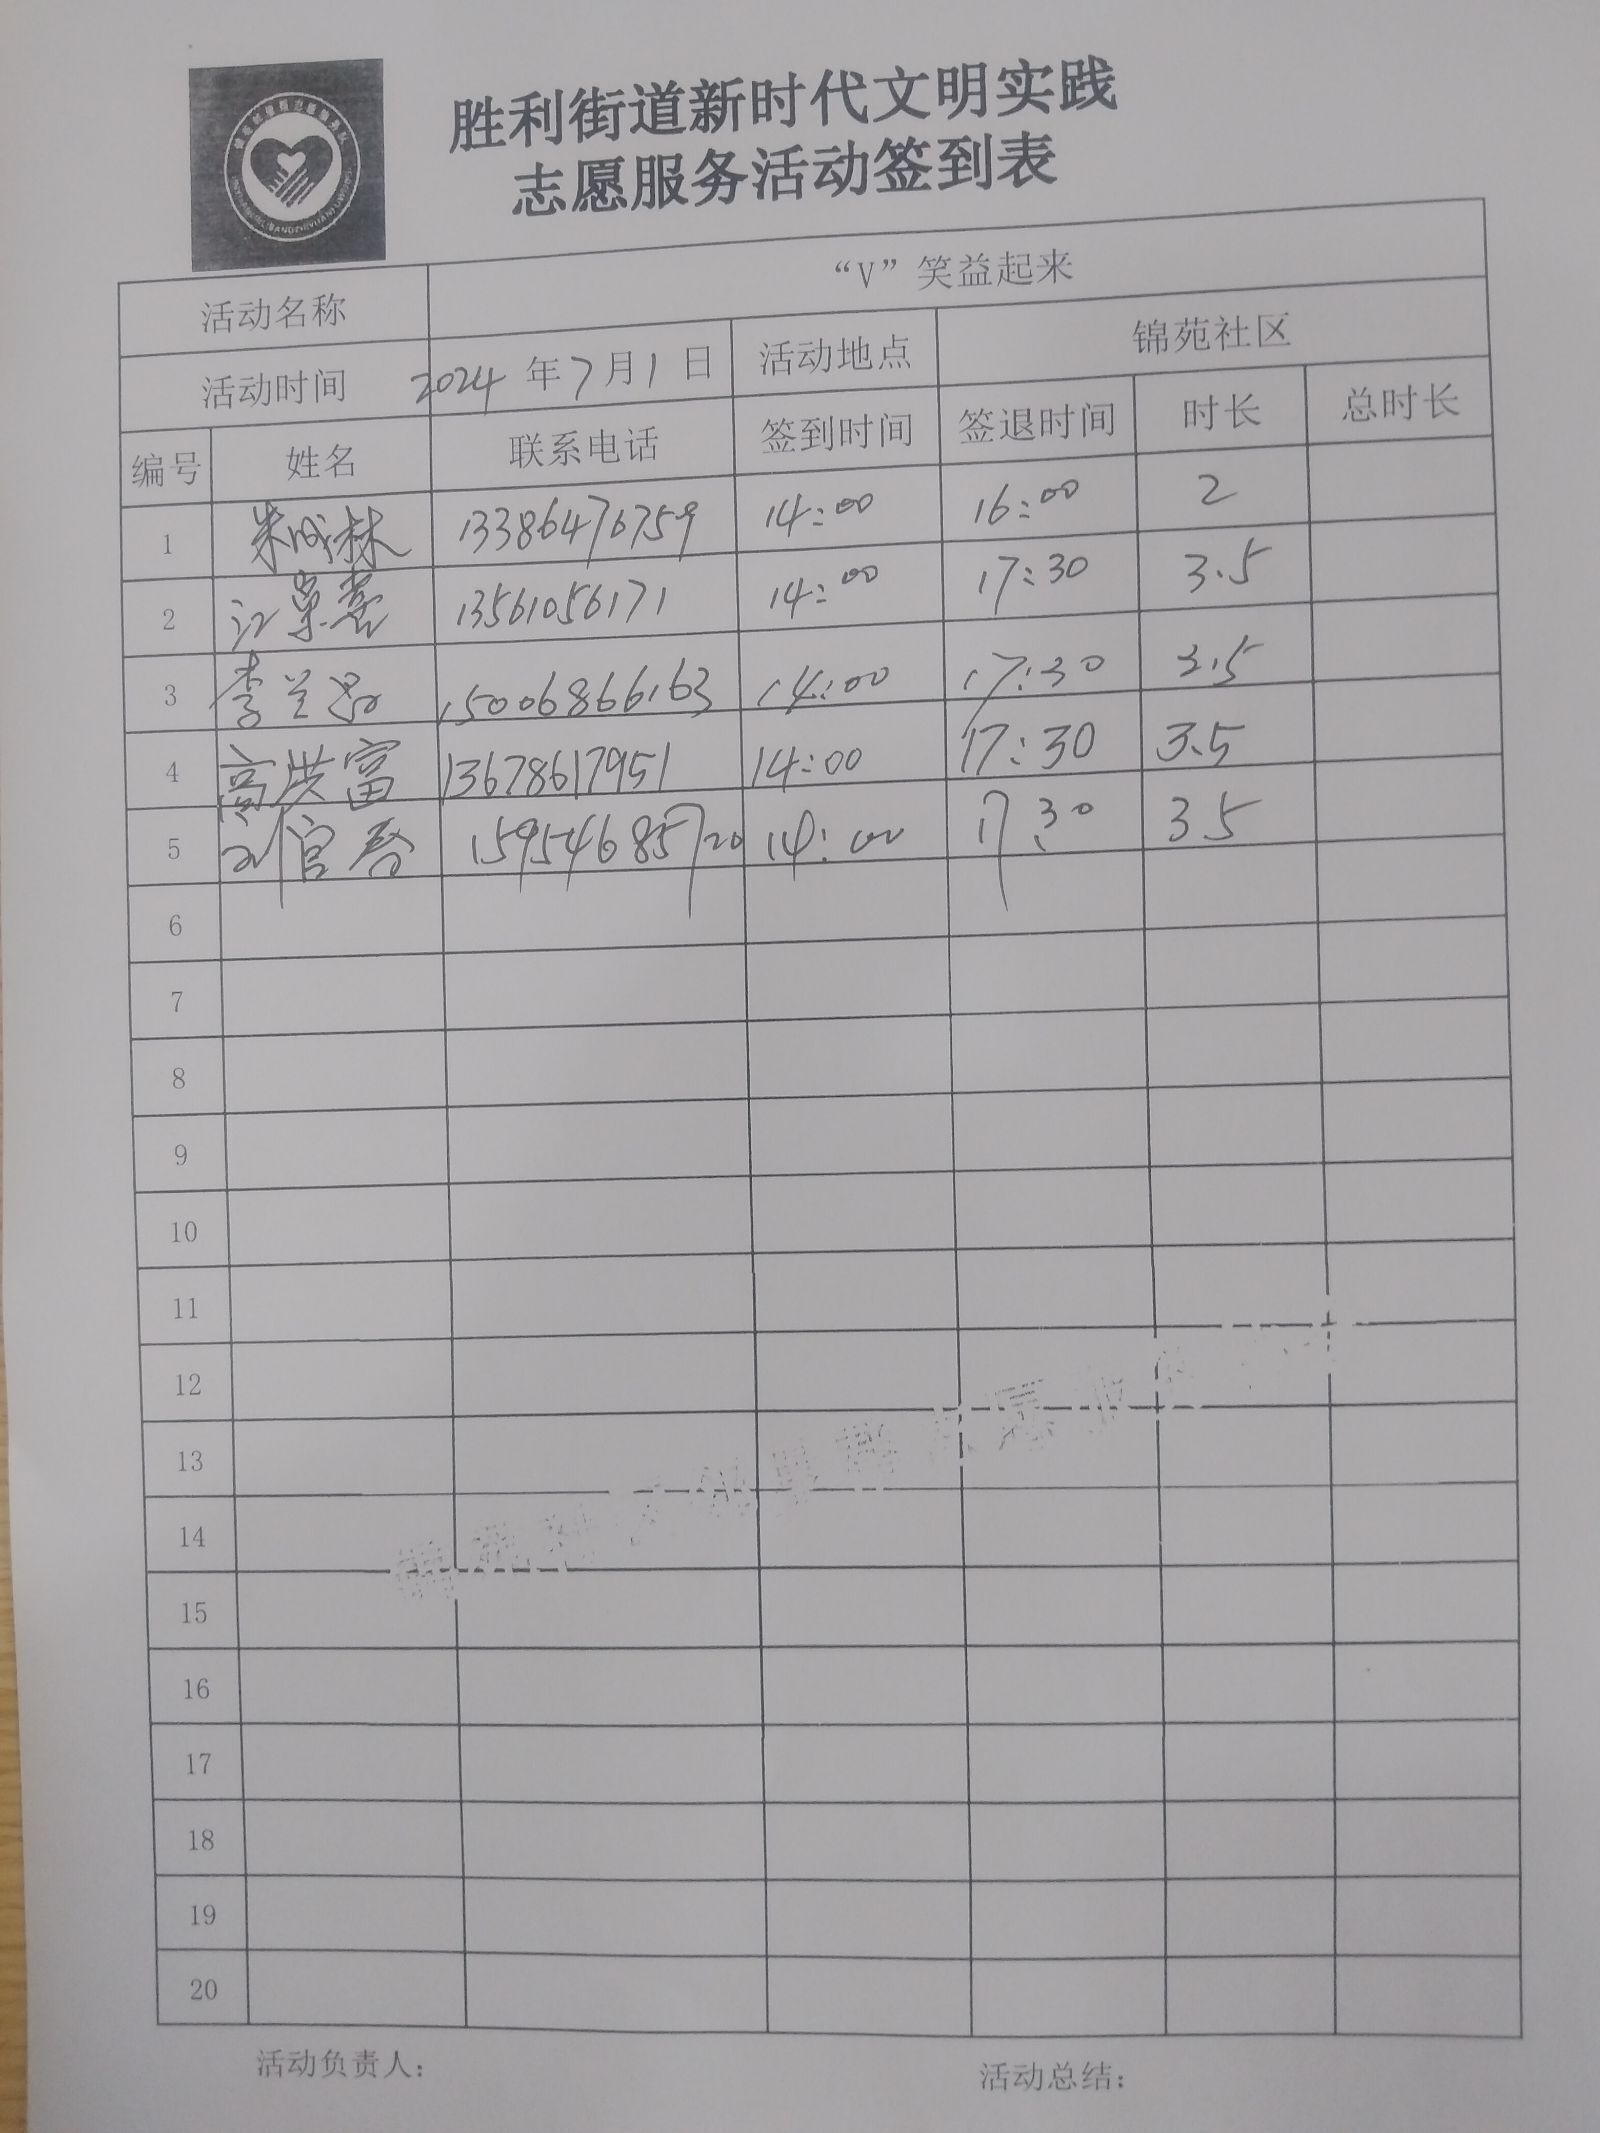 胜利街道新时代文明实践
志愿服务活动签到表
活动名称 “V”笑益起来
活动时间 2024年7月1日 活动地点 锦苑社区
编号 姓名 联系电话 签到时间 签退时间 时长 总时长
1 朱成林 13386476759 14:00 16:00 2
2 13561056171 14:00 17:30 3.5
3 李兰 15006866163 14:00 17:30 3.5
4 高洪富 13678617951 14:00 17:30 3.5
5 刘官春 15954685720 14:00 17:30 3.5
6
7
8
9
10
11
12
13
14
15
16
17
18
19
20
活动负责人： 活动总结：